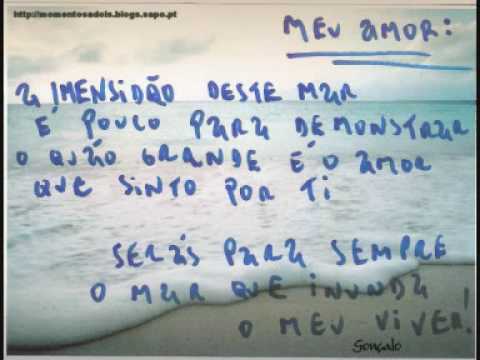 http://momentosadois.blogs.sapo.pt
MEU AMOR:
A IMENSIDÃO DESTE MAR
É POUCO PARA DEMONSTRAR
O QUÃO GRANDE É O AMOR
QUE SINTO POR TI
SERÁS PARA SEMPRE
O MAR QUE INUNDA
O MEU VIVER!
Gonçalo